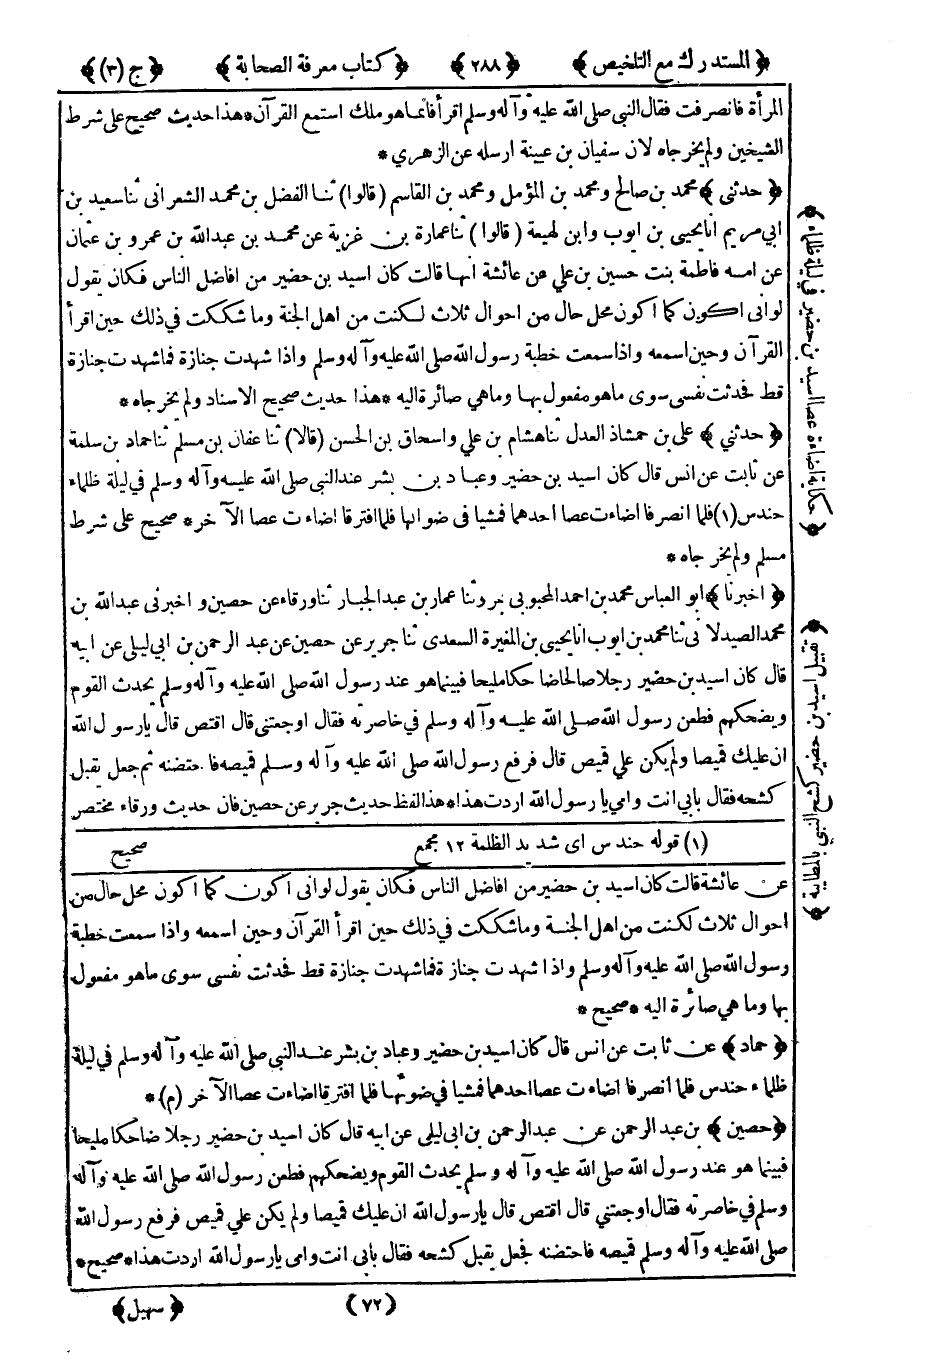 ﴿ المستدرك مع التلخيص ﴾ ﴿ ٢٨٨ ﴾ ﴿ كتاب معرفة الصحابة ﴾ ﴿ ج (٣) ﴾
المرأة فانصرفت فقال النبي صلى الله عليه وآله وسلم اقرأ فانما هو ملك استمع القرآن * هذا حديث صحيح على شرط
الشيخين ولم يخرجاه لان سفيان بن عيينة ارسله عن الزهري *
﴿ حدثني ﴾ محمد بن صالح ومحمد بن المؤمل ومحمد بن القاسم ( قالوا ) ثنا الفضل بن محمد الشعرانى ثنا سعيد بن
ابي مريم انا يحيى بن ايوب وابن لهيعة ( قالوا ) ثنا عمارة بن غزية عن محمد بن عبدالله بن عمرو بن عثمان
عن امه فاطمة بنت حسين بن علي عن عائشة انها قالت كان اسيد بن حضير من افاضل الناس فكان يقول
لو انى اكون كما اكون محل حال من احوال ثلاث لكنت من اهل الجنة وما شككت في ذلك حين اقرأ
القرآن وحين اسمعه واذا سمعت خطبة رسول الله صلى الله عليه وآله وسلم واذا شهدت جنازة فما شهدت جنازة
قط فحدثت نفسي سوى ماهو مفعول بها وماهي صائرة اليه * هذا حديث صحيح الاسناد ولم يخرجاه *
﴿ حدثني ﴾ على بن حمشاذ العدل ثنا هشام بن علي واسحاق بن الحسن ( قالا ) ثنا عفان بن مسلم ثنا حماد بن سلمة
عن ثابت عن انس قال كان اسيد بن حضير وعباد بن بشر عند النبي صلى الله عليه وآله وسلم في ليلة ظلماء
حندس (١) فلما انصرفا اضاءت عصا احدهما فمشيا فى ضوئها فلما افترقا اضاءت عصا الآخر * صحيح على شرط
مسلم ولم يخرجاه *
﴿ اخبرنا ﴾ ابو العباس محمد بن احمد المحبوبي بمرو ثنا عمار بن عبد الجبار ثنا ورقاء عن حصين و اخبرنى عبدالله بن
محمد الصيدلانى ثنا محمد بن ايوب انا يحيى بن المغيرة السعدى ثنا جرير عن حصين عن عبد الرحمن بن ابي ليلى عن ابيه
قال كان اسيد بن حضير رجلا صالحا ضاحكا مليحا فبينما هو عند رسول الله صلى الله عليه وآله وسلم يحدث القوم
ويضحكهم فطعن رسول الله صلى الله عليه وآله وسلم في خاصرته فقال اوجعتني قال اقتص قال يا رسول الله
ان عليك قميصا ولم يكن علي قميص قال فرفع رسول الله صلى الله عليه وآله وسلم قميصه فاحتضنه ثم جعل يقبل
كشحه فقال بابي انت وامي يا رسول الله اردت هذا * هذا لفظ حديث جرير عن حصين فان حديث ورقاء مختصر
(١) قوله حندس اى شديد الظلمة ١٢ مجمع
صحيح
عن عائشة قالت كان اسيد بن حضير من افاضل الناس فكان يقول لو انى اكون كما اكون محل حال من
احوال ثلاث لكنت من اهل الجنة وما شككت في ذلك حين اقرأ القرآن وحين اسمعه واذا سمعت خطبة
رسول الله صلى الله عليه وآله وسلم واذا شهدت جنازة فما شهدت جنازة قط فحدثت نفسى سوى ماهو مفعول
بها وما هي صائرة اليه * صحيح *
﴿ حماد ﴾ عن ثابت عن انس قال كان اسيد بن حضير وعباد بن بشر عند النبي صلى الله عليه وآله وسلم في ليلة
ظلماء حندس فلما انصرفا اضاءت عصا احدهما فمشيا في ضوئها فلما افترقا اضاءت عصا الآخر (م) *
﴿ حصين ﴾ بن عبد الرحمن عن عبد الرحمن بن ابى ليلى عن ابيه قال كان اسيد بن حضير رجلا ضاحكا مليحا
فبينما هو عند رسول الله صلى الله عليه وآله وسلم يحدث القوم ويضحكهم فطعن رسول الله صلى الله عليه وآله
وسلم في خاصرته فقال اوجعتني قال اقتص قال يا رسول الله ان عليك قميصا ولم يكن علي قميص فرفع رسول الله
صلى الله عليه وآله وسلم قميصه فاحتضنه فجعل يقبل كشحه فقال بابى انت وامى يا رسول الله اردت هذا * صحيح *
﴿ حكاية اضاءة عصا اسيد بن حضير في ليلة ظلماء ﴾
﴿ تقبيل اسيد بن حضير كشح النبي بالمطايبة ﴾
(٧٢) ﴿ سهيل ﴾